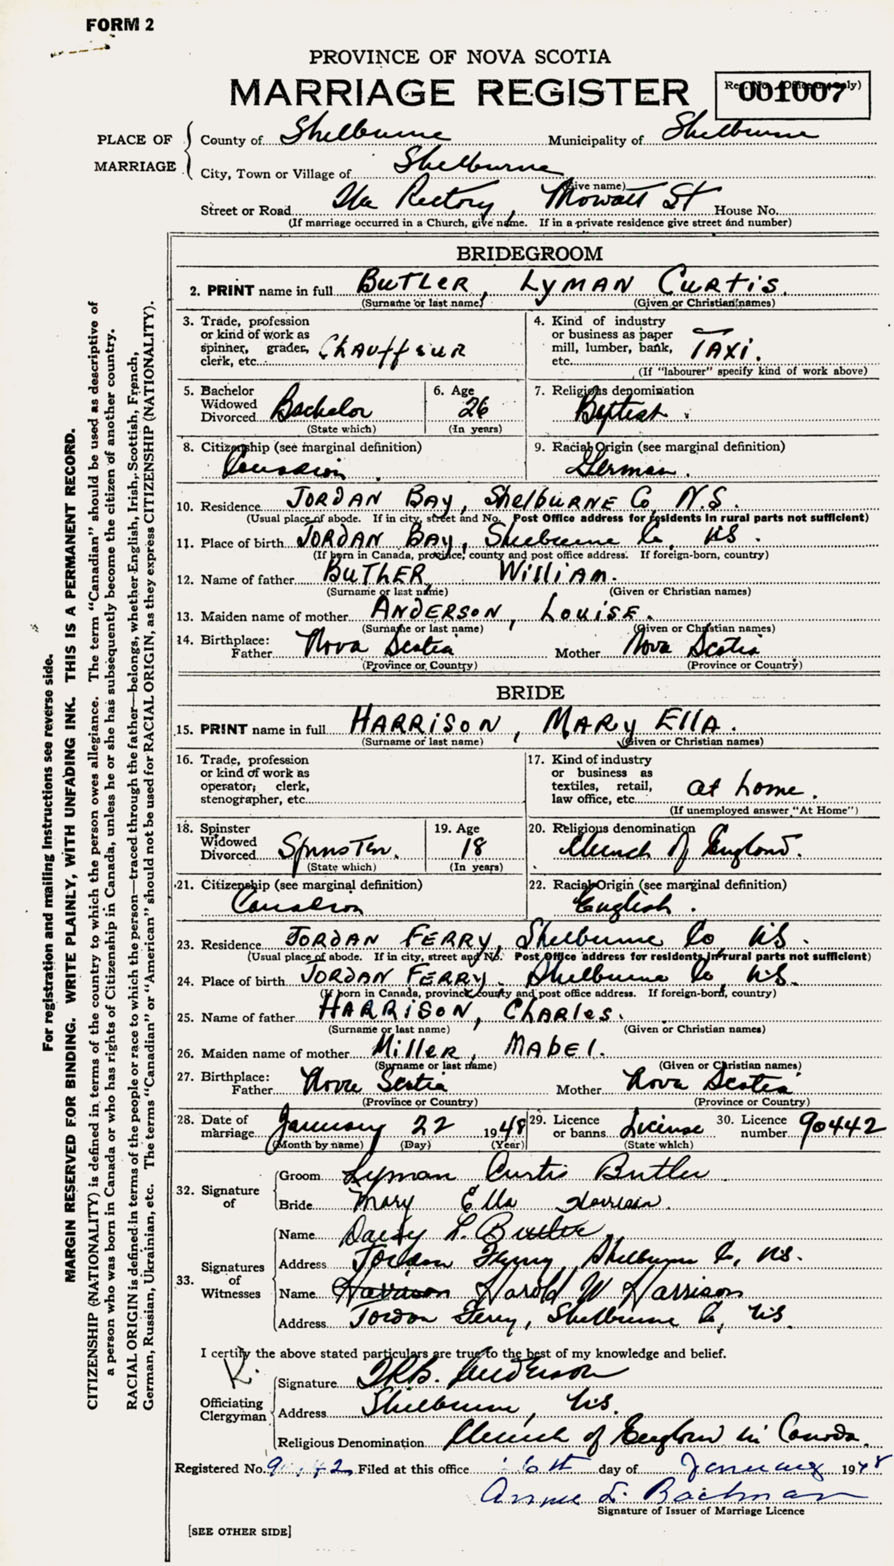 FORM 2
PROVINCE OF NOVA SCOTIA
MARRIAGE REGISTER
001007
PLACE OF MARRIAGE
County of Shelburne Municipality of Shelburne
City, Town or Village of Shelburne
(Give name)
Street or Road The Rectory, Mowatt St House No.
(If marriage occurred in a Church, give name. If in a private residence give street and number)
BRIDEGROOM
2. PRINT name in full BUTLER, LYMAN CURTIS.
(Surname or last name) (Given or Christian names)
3. Trade, profession or kind of work as spinner, grader, clerk, etc. CHAUFFEUR
4. Kind of industry or business as paper mill, lumber, bank, etc. TAXI.
(If "labourer" specify kind of work above)
5. Bachelor Widowed Divorced Bachelor
(State which)
6. Age 26
(In years)
7. Religious denomination Baptist.
8. Citizenship (see marginal definition) Canadian
9. Racial Origin (see marginal definition) German.
10. Residence JORDAN BAY, ShelBURNE Co, N.S.
(Usual place of abode. If in city, street and No. Post Office address for residents in rural parts not sufficient)
11. Place of birth JORDAN BAY, Shelburne Co, NS.
(If born in Canada, province, county and post office address. If foreign-born, country)
12. Name of father BUTLER, WILLIAM.
(Surname or last name) (Given or Christian names)
13. Maiden name of mother ANDERSON, LOUISE.
(Surname or last name) (Given or Christian names)
14. Birthplace: Father Nova Scotia Mother Nova Scotia
(Province or Country) (Province or Country)
BRIDE
15. PRINT name in full HARRISON, MARY ELLA.
(Surname or last name) (Given or Christian names)
16. Trade, profession or kind of work as operator, clerk, stenographer, etc.
17. Kind of industry or business as textiles, retail, law office, etc. at home.
(If unemployed answer "At Home")
18. Spinster Widowed Divorced Spinster.
(State which)
19. Age 18
(In years)
20. Religious denomination Church of England.
21. Citizenship (see marginal definition) Canadian
22. Racial Origin (see marginal definition) English.
23. Residence JORDAN FERRY, Shelburne Co, NS.
(Usual place of abode. If in city, street and No. Post Office address for residents in rural parts not sufficient)
24. Place of birth JORDAN FERRY. Shelburne Co, NS.
(If born in Canada, province, county and post office address. If foreign-born, country)
25. Name of father HARRISON, CHARLES.
(Surname or last name) (Given or Christian names)
26. Maiden name of mother Miller, MABEL.
(Surname or last name) (Given or Christian names)
27. Birthplace: Father Nova Scotia Mother Nova Scotia
(Province or Country) (Province or Country)
28. Date of marriage January 22 1948
(Month by name) (Day) (Year)
29. Licence or banns License
(State which)
30. Licence number 90442
32. Signature of
Groom Lyman Curtis Butler
Bride Mary Ella Harrison.
33. Signatures of Witnesses
Name Daisy L. Butler
Address Jordan Ferry, Shelburne Co, NS.
Name Harrison Harold W Harrison
Address Jordan Ferry, Shelburne Co, NS.
I certify the above stated particulars are true to the best of my knowledge and belief.
Officiating Clergyman
Signature Anderson
Address Shelburne, NS.
Religious Denomination Church of England in Canada.
Registered No. Filed at this office day of January 1948
Annie L. Bachman
Signature of Issuer of Marriage Licence
[SEE OTHER SIDE]
For registration and mailing instructions see reverse side.
MARGIN RESERVED FOR BINDING. WRITE PLAINLY, WITH UNFADING INK. THIS IS A PERMANENT RECORD.
CITIZENSHIP (NATIONALITY) is defined in terms of the country to which the person owes allegiance. The term "Canadian" should be used as descriptive of
a person who was born in Canada or who has rights of Citizenship in Canada, unless he or she has subsequently become the citizen of another country.
RACIAL ORIGIN is defined in terms of the people or race to which the person—traced through the father—belongs, whether English, Irish, Scottish, French,
German, Russian, Ukrainian, etc. The terms "Canadian" or "American" should not be used for RACIAL ORIGIN, as they express CITIZENSHIP (NATIONALITY).